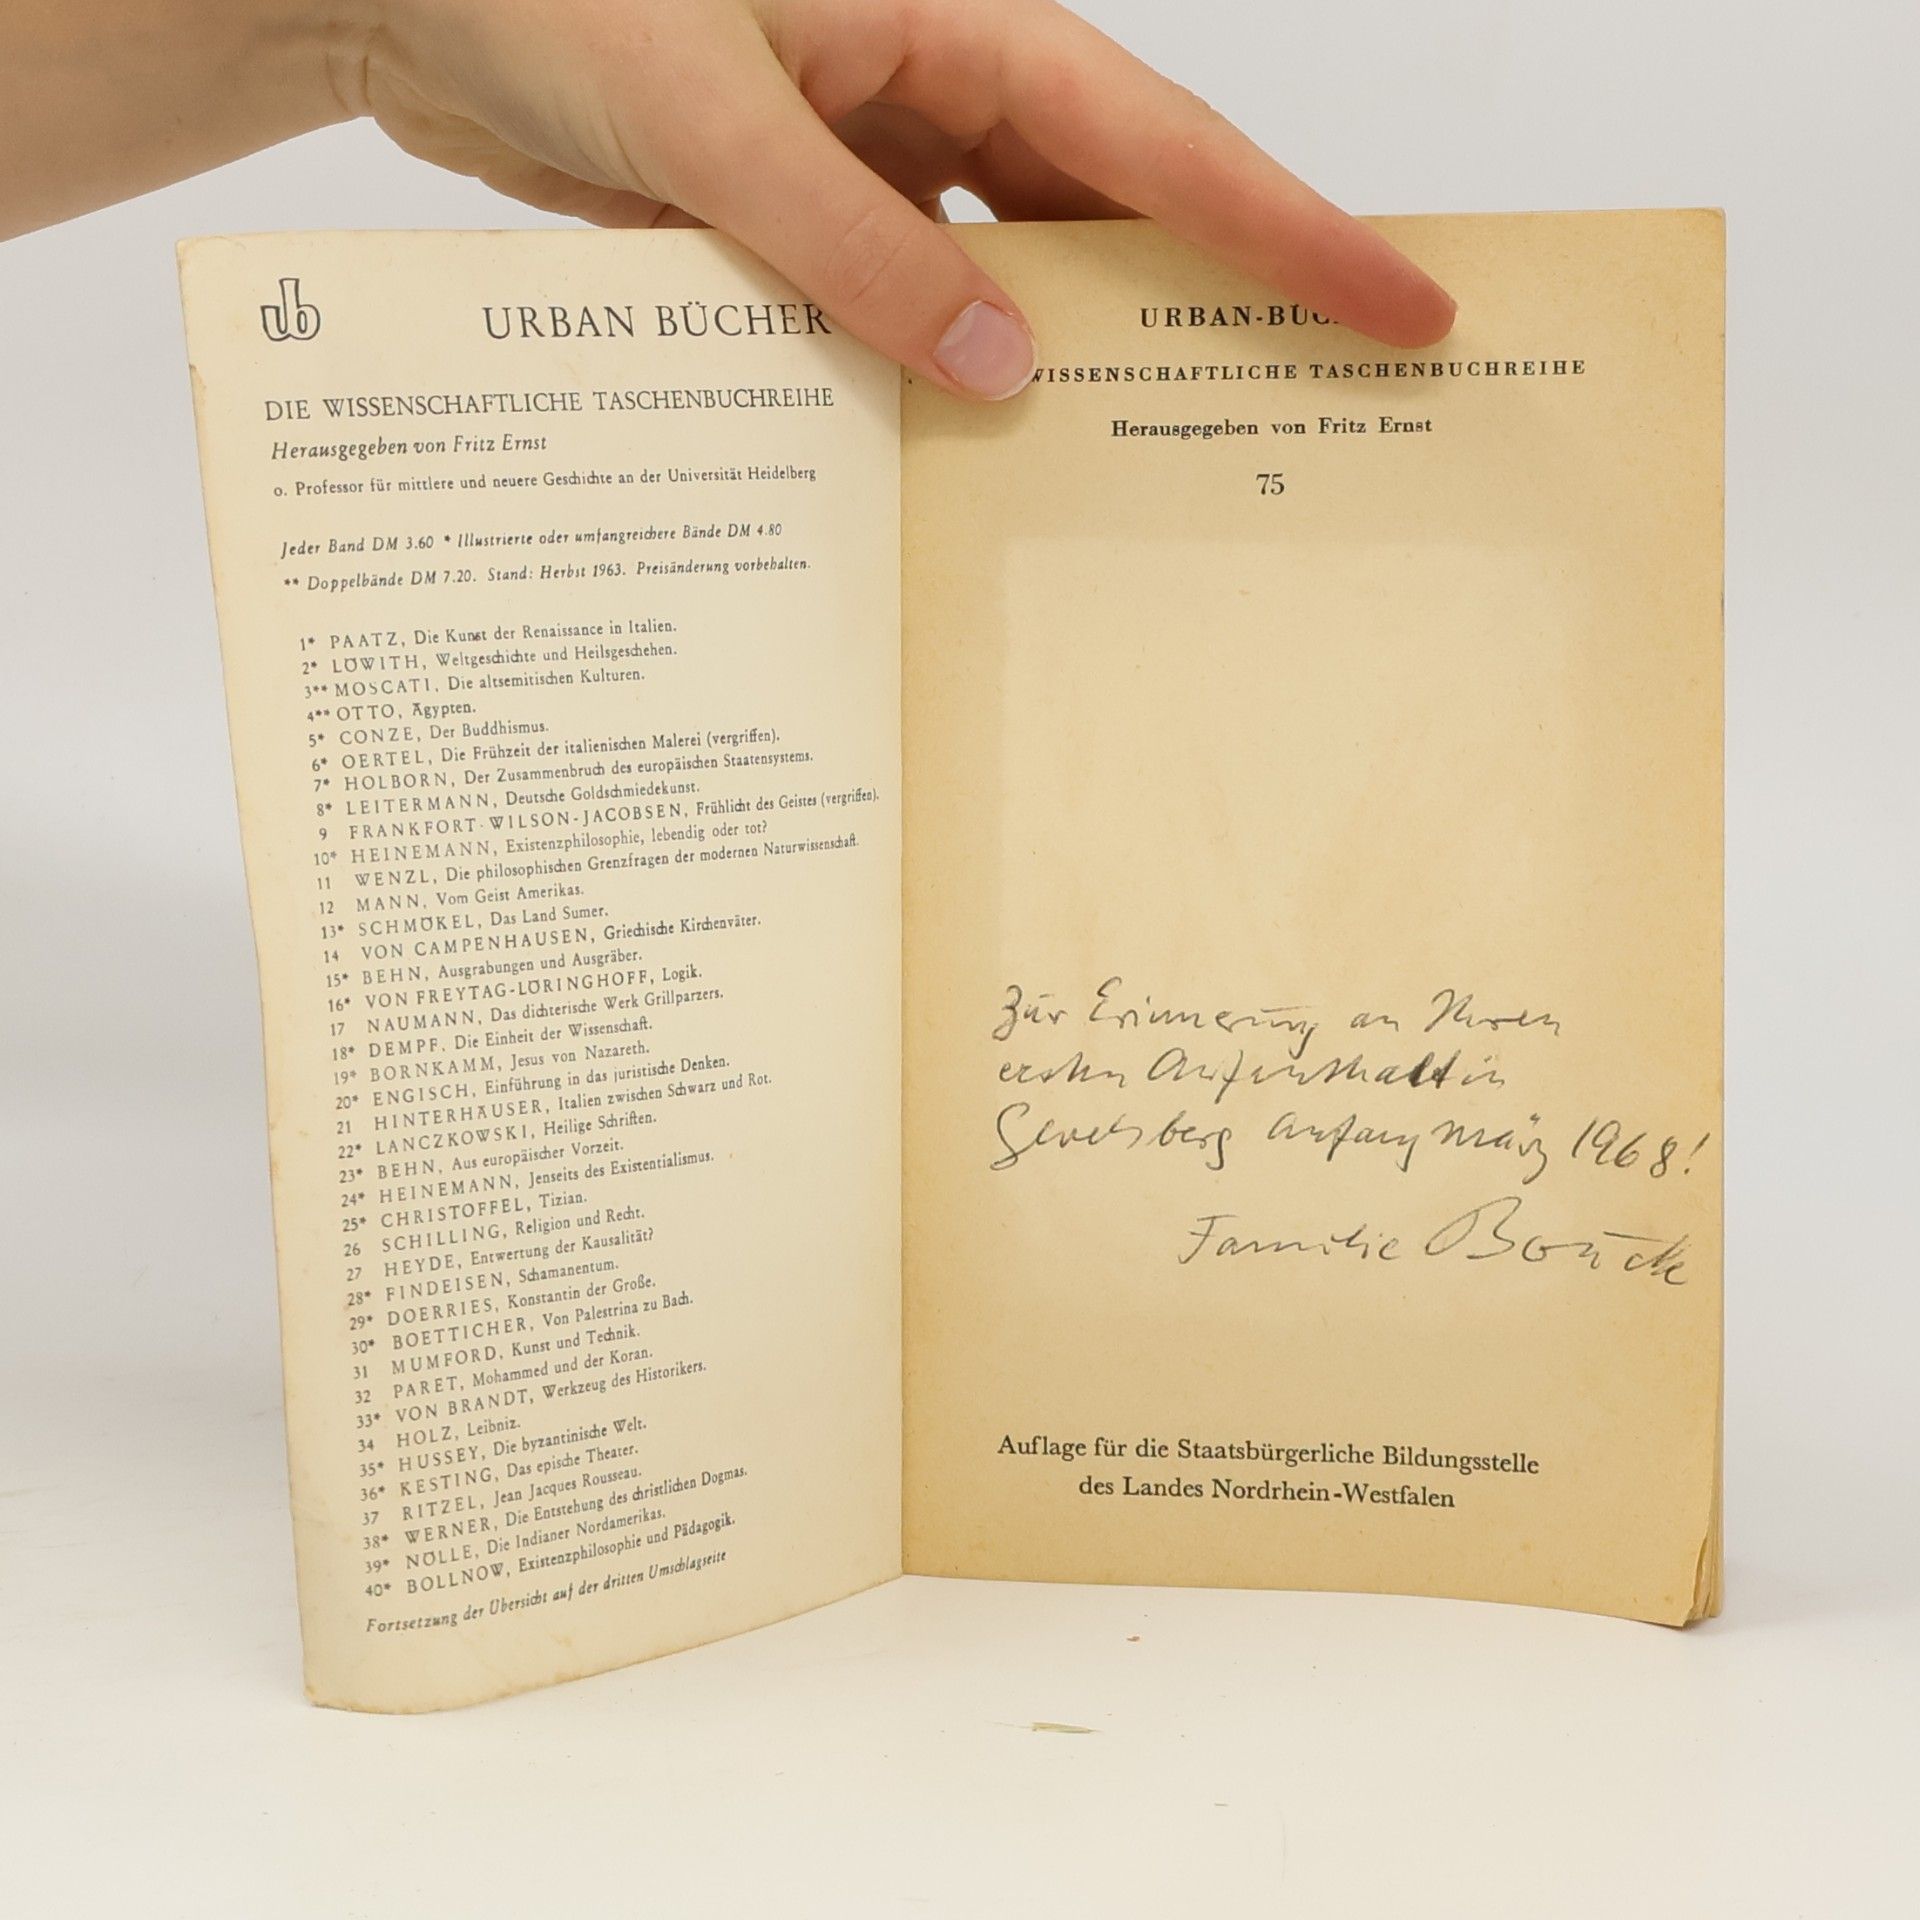 ub
URBAN BÜCHER
DIE WISSENSCHAFTLICHE TASCHENBUCHREIHE
Herausgegeben von Fritz Ernst
o. Professor für mittlere und neuere Geschichte an der Universität Heidelberg
Jeder Band DM 3.60 * Illustrierte oder umfangreichere Bände DM 4.80
** Doppelbände DM 7.20. Stand: Herbst 1963. Preisänderung vorbehalten.
1* PAATZ, Die Kunst der Renaissance in Italien.
2* LÖWITH, Weltgeschichte und Heilsgeschehen.
3** MOSCATI, Die altsemitischen Kulturen.
4** OTTO, Ägypten.
5* CONZE, Der Buddhismus.
6* OERTEL, Die Frühzeit der italienischen Malerei (vergriffen).
7* HOLBORN, Der Zusammenbruch des europäischen Staatensystems.
8* LEITERMANN, Deutsche Goldschmiedekunst.
9 FRANKFORT-WILSON-JACOBSEN, Frühlicht des Geistes (vergriffen).
10* HEINEMANN, Existenzphilosophie, lebendig oder tot?
11 WENZL, Die philosophischen Grenzfragen der modernen Naturwissenschaft.
12 MANN, Vom Geist Amerikas.
13* SCHMÖKEL, Das Land Sumer.
14 VON CAMPENHAUSEN, Griechische Kirchenväter.
15* BEHN, Ausgrabungen und Ausgräber.
16* VON FREYTAG-LÖRINGHOFF, Logik.
17 NAUMANN, Das dichterische Werk Grillparzers.
18* DEMPF, Die Einheit der Wissenschaft.
19* BORNKAMM, Jesus von Nazareth.
20* ENGISCH, Einführung in das juristische Denken.
21 HINTERHÄUSER, Italien zwischen Schwarz und Rot.
22* LANCZKOWSKI, Heilige Schriften.
23* BEHN, Aus europäischer Vorzeit.
24* HEINEMANN, Jenseits des Existentialismus.
25* CHRISTOFFEL, Tizian.
26 SCHILLING, Religion und Recht.
27 HEYDE, Entwertung der Kausalität?
28* FINDEISEN, Schamanentum.
29* DOERRIES, Konstantin der Große.
30* BOETTICHER, Von Palestrina zu Bach.
31 MUMFORD, Kunst und Technik.
32 PARET, Mohammed und der Koran.
33* VON BRANDT, Werkzeug des Historikers.
34 HOLZ, Leibniz.
35* HUSSEY, Die byzantinische Welt.
36* KESTING, Das epische Theater.
37 RITZEL, Jean Jacques Rousseau.
38* WERNER, Die Entstehung des christlichen Dogmas.
39* NÖLLE, Die Indianer Nordamerikas.
40* BOLLNOW, Existenzphilosophie und Pädagogik.
Fortsetzung der Übersicht auf der dritten Umschlagseite
URBAN-BÜC
WISSENSCHAFTLICHE TASCHENBUCHREIHE
Herausgegeben von Fritz Ernst
75
Zur Erinnerung an Ihren
ersten Aufenthalt in
Gevelsberg Anfang März 1968!
Familie
Auflage für die Staatsbürgerliche Bildungsstelle
des Landes Nordrhein-Westfalen